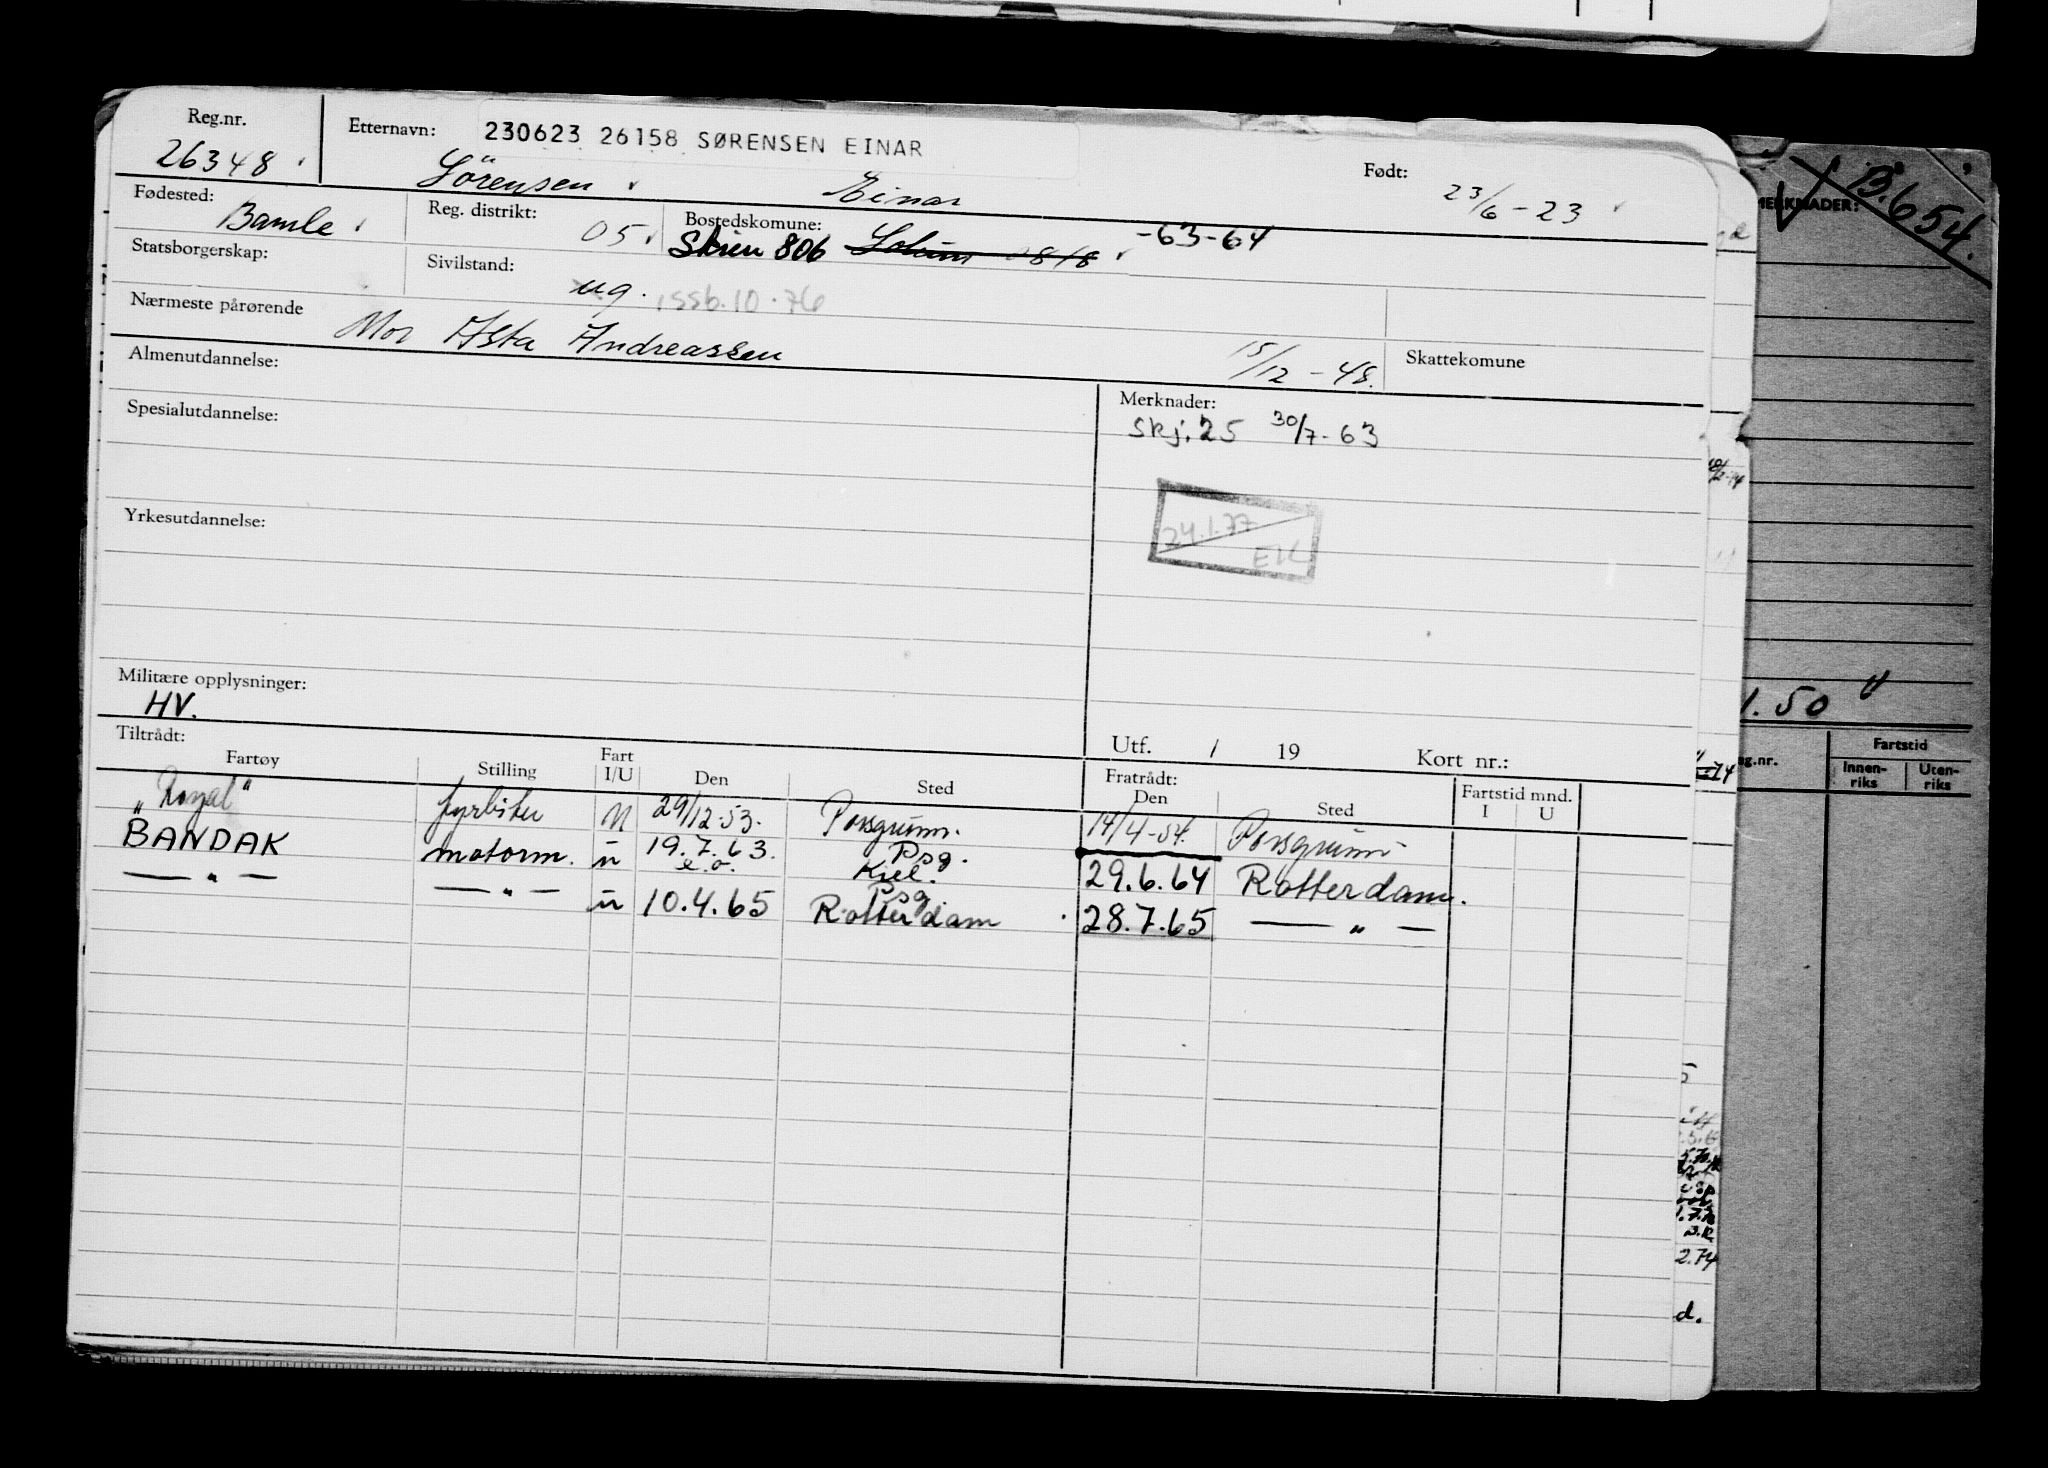 Reg.nr.
26348
Etternavn: 230623 26158 SØRENSEN EINAR
Sörensen Einar
Født: 23/6-23
Fødested: Bamle
Reg. distrikt: 05
Bostedskomune: Skien 806 Solum -63-64
Statsborgerskap:
Sivilstand: ug.
issb.10.76
Nærmeste pårørende Mor Asta Andreassen 15/12-48.
Skattekomune
Almenutdannelse:
Merknader:
Skj. 25 30/7-63
Spesialutdannelse:
24.1.77
EK
Yrkesutdannelse:
Militære opplysninger:
HV.
Tiltrådt:
Utf. / 19 Kort nr.:
Fartøy Stilling Fart I/U Den Sted Fratrådt: Den Sted Fartstid mnd. I U
"Royal" fyrbøter U 29/12-53. Porsgrunn. 14/4-54. Porsgrunn
BANDAK motorm. u 19.7.63. e.o. Psg. Kiel. 29.6.64 Rotterdam.
— " — — " — u 10.4.65 Psg. Rotterdam 28.7.65 — " —
MERKNADER:
B.654.
1.50 "
Fartstid
Innen-riks Uten-riks
2.74
d.